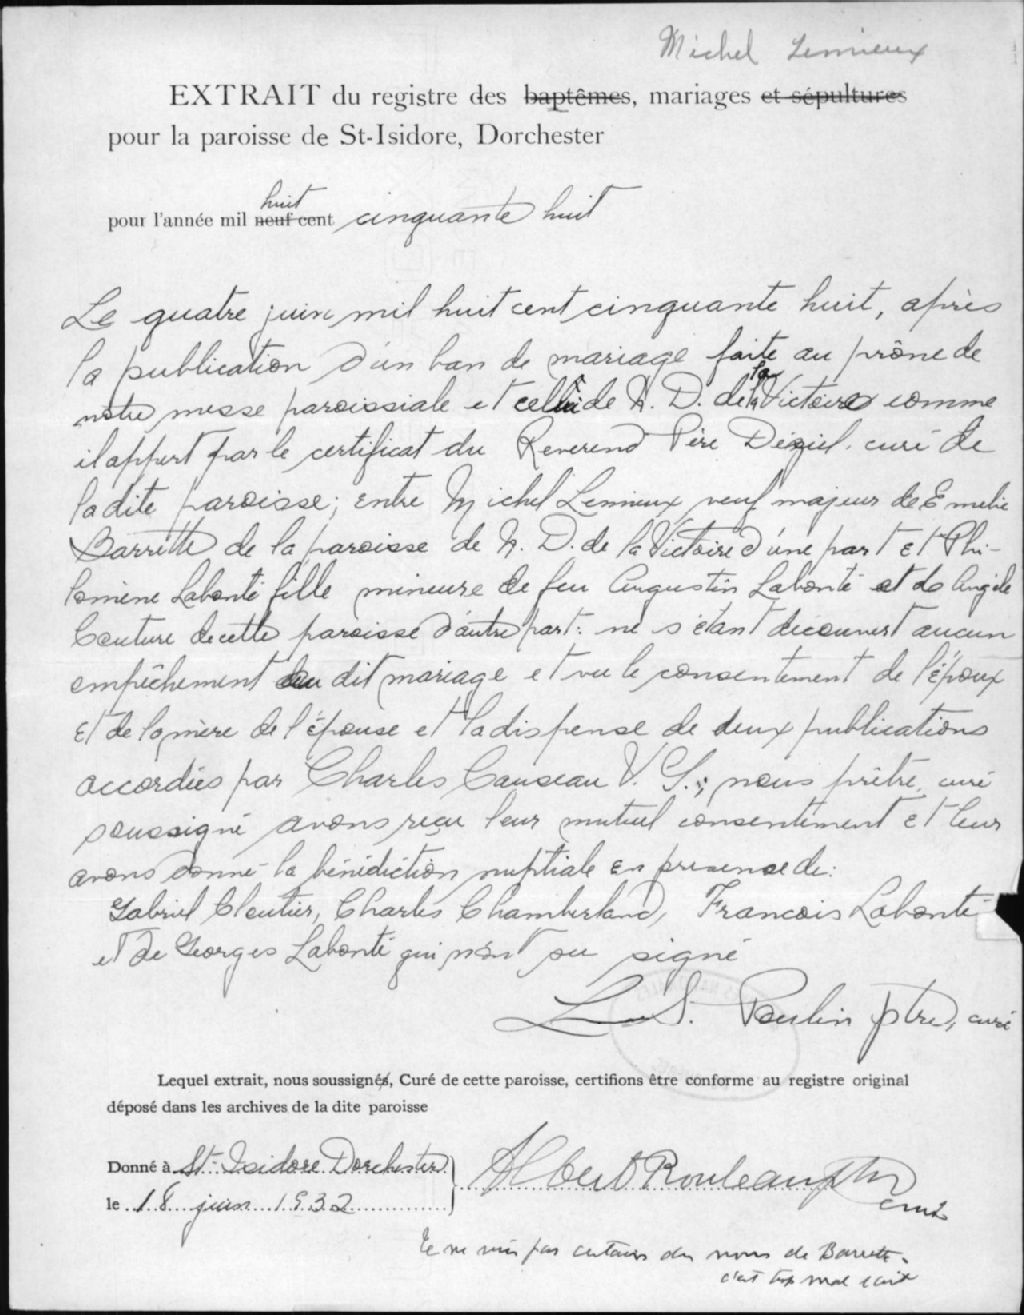 Michel Lemieux
EXTRAIT du registre des baptêmes, mariages et sépultures
pour la paroisse de St-Isidore, Dorchester
huit
pour l'année mil neuf cent cinquante huit
Le quatre juin mil huit cent cinquante huit, après
la publication d'un ban de mariage faite au prône de
notre messe paroissiale et celui de N. D. de la Victoire comme
il appert par le certificat du Reverend Père Déziel, curé de
la dite paroisse; entre Michel Lemieux veuf majeur de Emelie
Barrette de la paroisse de N. D. de la Victoire d'une part et Phi-
lomène Labonté fille mineure de feu Augustin Labonté et de Angèle
Couture de cette paroisse d'autre part: ne s'étant découvert aucun
empêchement au dit mariage et vu le consentement de l'époux
et de la mère de l'épouse et la dispense de deux publications
accordées par Charles Causeau V. G.; nous prêtre, curé
soussigné avons reçu leur mutuel consentement et leur
avons donné la bénédiction nuptiale en présence de:
Gabriel Cloutier, Charles Chamberland, Francois Labonté
et de Georges Labonté qui n'ont su signé
L. S. Poulin ptre, curé
Lequel extrait, nous soussignés, Curé de cette paroisse, certifions être conforme au registre original
déposé dans les archives de la dite paroisse
Donné à St-Isidore Dorchester
le 18 juin 1932
Albert Rouleau ptr
curé
Je ne suis pas certain du nom de Barrette.
c'est trop mal écrit